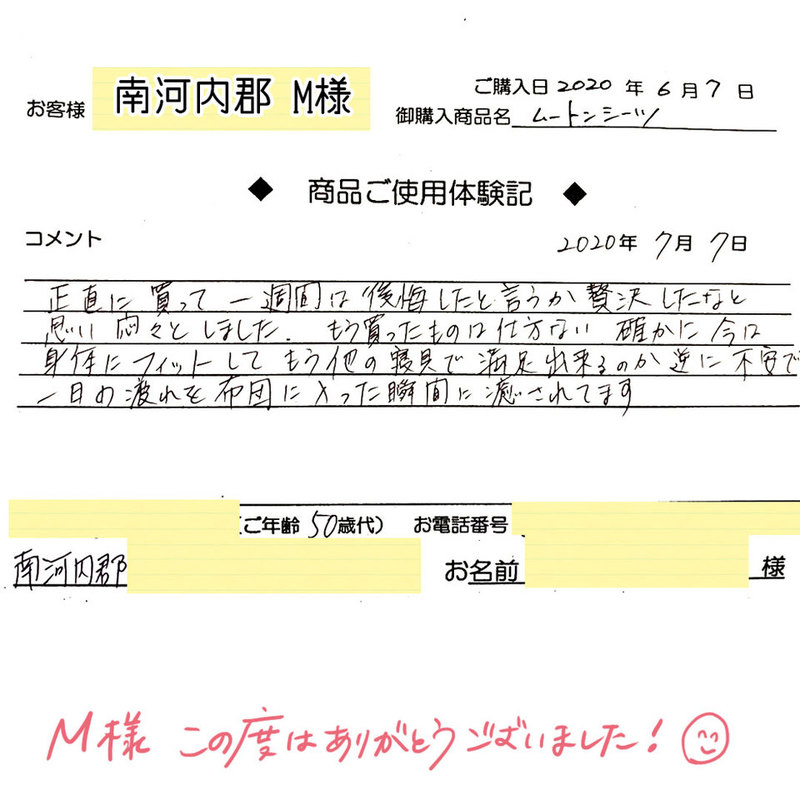 お客様 南河内郡 M様
ご購入日 2020 年 6 月 7 日
御購入商品名 ムートンシーツ
◆ 商品ご使用体験記 ◆
コメント 2020年 7月 7日
正直に 買って 一週間は 後悔したと言うか 贅沢したなと
思い 悶々としました. もう買ったものは仕方ない 確かに 今は
身体にフィットして もう他の寝具で 満足出来るのか逆に 不安で
一日の疲れを 布団に入った瞬間に癒されてます
(ご年齢 50歳代) お電話番号
南河内郡 お名前 様
M様 この度はありがとうございました!